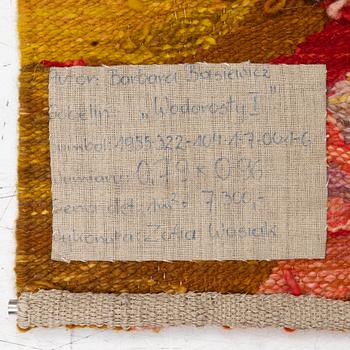 Autor: Barbara Basiewicz
Gobelin: „Wodorosty I"
Symbol: 1955-322-104-1-7-001-G
Wymiary: 0,79 x 0,96
Cena det. 1m²: 7 300,-
Wykonała: Zofia Wasiak